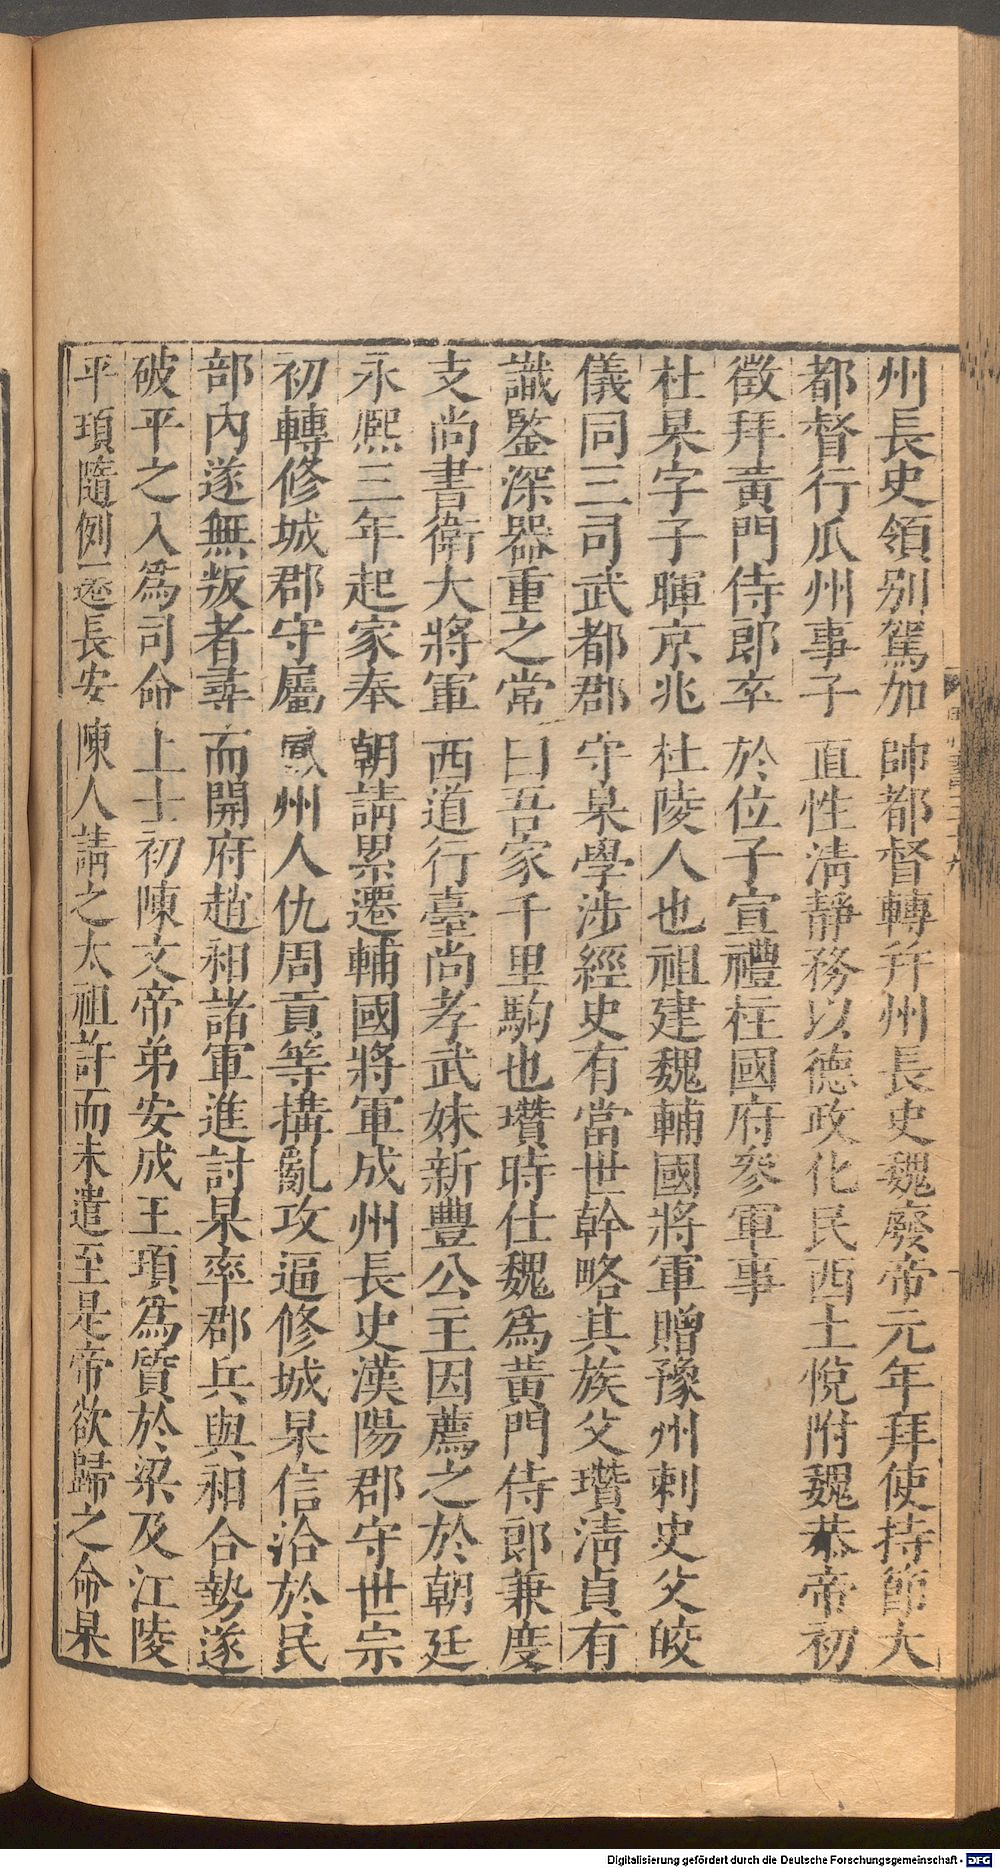 州長史領別駕加帥都督轉幷州長史魏廢帝元年拜使持節大
都督行瓜州事子直性淸靜務以德政化民西土悅附魏恭帝初
徵拜黃門侍郎卒於位子宣禮柱國府參軍事
杜杲字子暉京兆杜陵人也祖建魏輔國將軍贈豫州刺史父皎
儀同三司武都郡守杲學涉經史有當世幹略其族父瓚淸貞有
識鑒深器重之常曰吾家千里駒也瓚時仕魏爲黃門侍郎兼度
支尚書衛大將軍西道行臺尚孝武妹新豐公主因薦之於朝廷
永熙三年起家奉朝請累遷輔國將軍成州長史漢陽郡守世宗
初轉修城郡守屬鳳州人仇周貢等搆亂攻逼修城杲信洽於民
部內遂無叛者尋而開府趙昶諸軍進討杲率郡兵與昶合勢遂
破平之入爲司命上士初陳文帝弟安成王頊爲質於梁及江陵
平頊隨例遷長安陳人請之太祖許而未遣至是帝欲歸之命杲
Digitalisierung gefördert durch die Deutsche Forschungsgemeinschaft - DFG